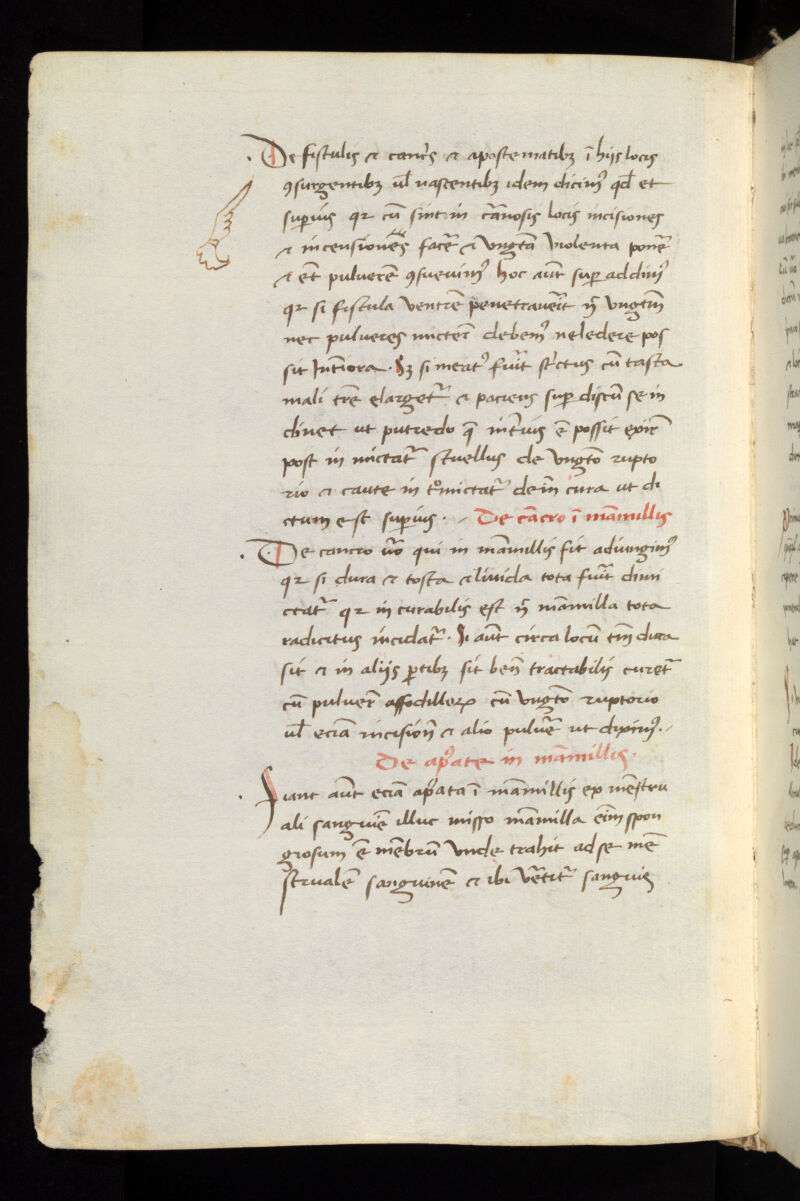 De fistulis ⁊ cancr̄s ⁊ apostematibꝫ ī hijs locis
ꝯsurgentibꝫ ul̄ nascentibꝫ idem dicimꝰ qd̄ et
superius qr cū sint in carnosis locis incisiones
⁊ incensiōēs facer̄ ⁊ ungtā violenta poner̄
⁊ et̄ pulverē ꝯsuevimꝰ hoc aūt sup addimꝰ
qr si fistula ventrē penetraverīt n̄ ungtm̄
nec pulveres mictere debemꝰ ne ledere pos
sit Interiora. Sꝫ si meatꝰ fuīt strictus cū tasta
mali tre elargetr̄ ⁊ paciens sup discū se in
clinet ut putredo q̄ interius ē possit exir̄
post in mictatr̄ stuellus de ungto rupto
rio ⁊ caute in tromictatr̄ dein̄ cura ut di
ctum est superius. De cācro ī māmillis
De cancro ūo qui in māmillis fit adiungimꝰ
qr si dura ⁊ tosta ⁊ livida tota fuīt dimi
ctatr̄ qr in curabilis est n̄ mamilla tota
radicitus incidatr̄. Si aūt circa locū tm̄ dura
sit ⁊ in alijs ꝑtibꝫ sit ben̄ tractabilis curetr̄
cū pulver̄ affodilloꝝ cū ungto ruptorio
ul̄ eciā incision̄ ⁊ alio pulver̄ ut diximꝰ.
De ap̄ate in māmillis.
Fiant aūt eciā ap̄ata ī māmillis ex menstru
ali sanguīe illuc misso māmilla eīm spon
grosum ē mēbrū unde trahit ad se mē
strualē sanguinē ⁊ ibi vertitr̄ sanguis